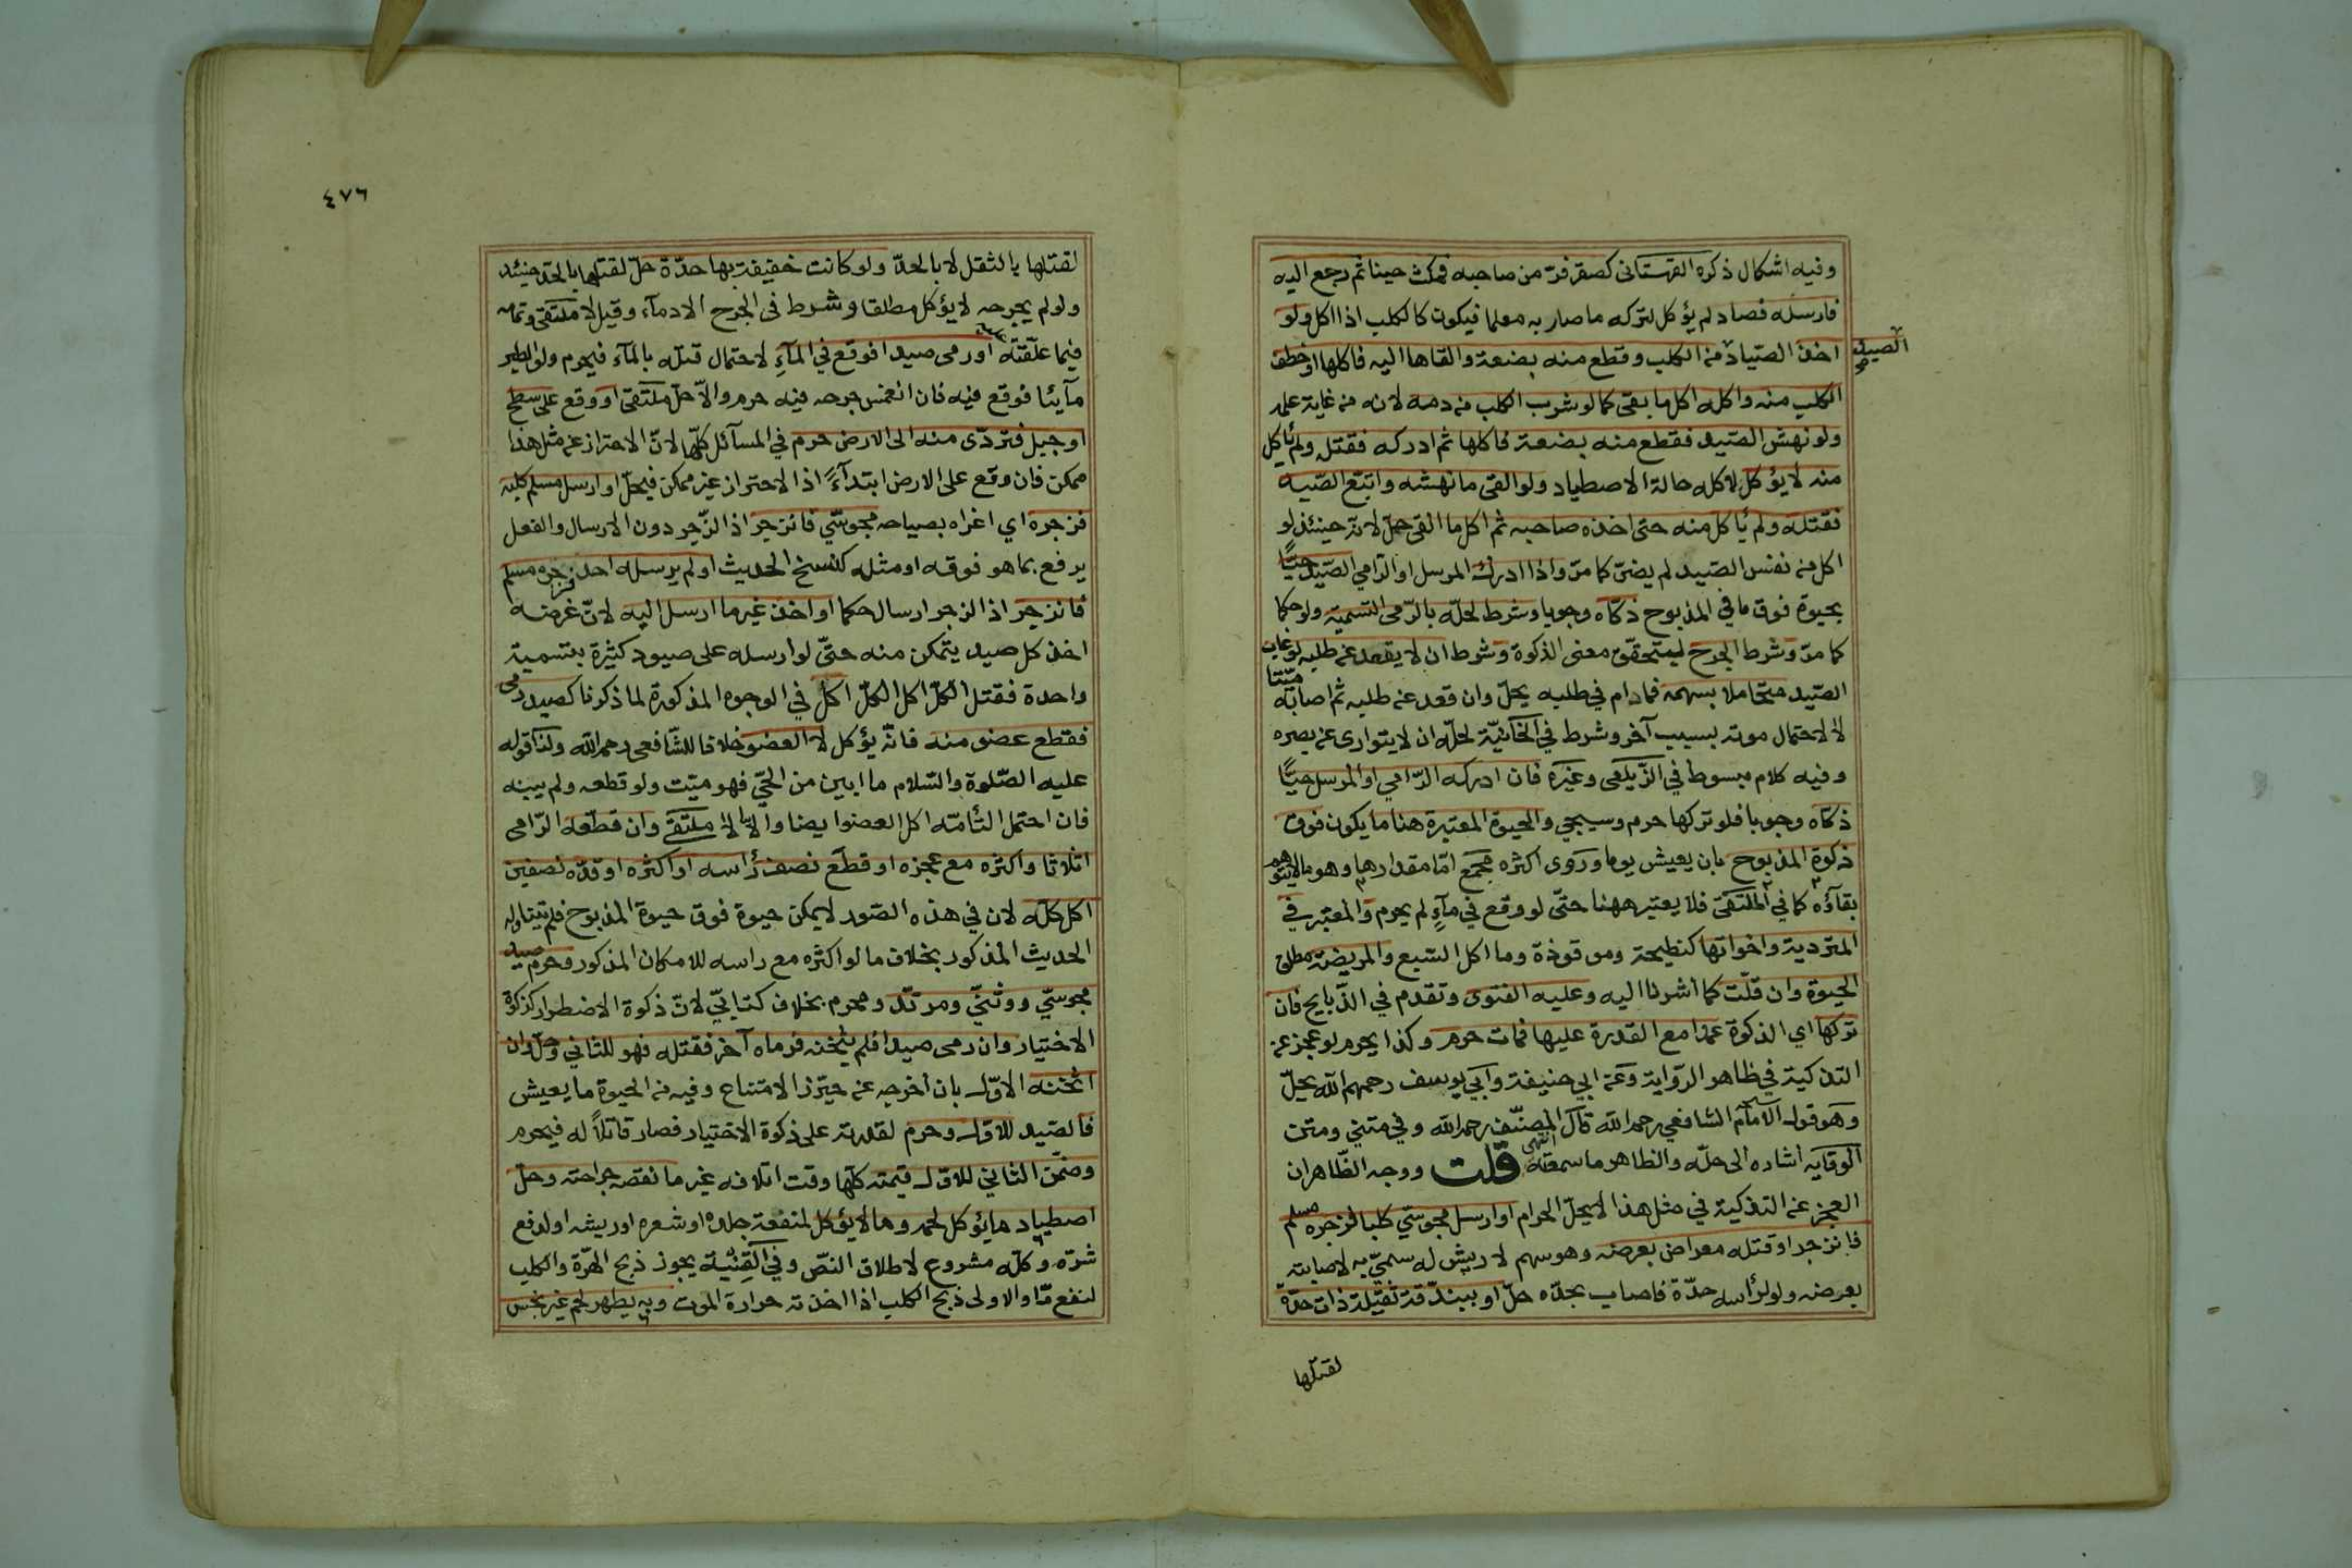 وفيه اشكال ذكره القهستانى كصقر فرّ من صاحبه فمكث حينا ثم رجع اليه
فارسله فصاد لم يؤكل لتركه ما صار به معلما فيكون كالكلب اذا اكل ولو
اخذ الصّياد من الكلب وقطع منه بضعة والقاها اليه فاكلها او خطف
الصيد
الكلب منه واكله اكل ما بقى كما لو شرب الكلب من دمه لانه من غاية علمه
ولو نهش الصّيد فقطع منه بضعة فاكلها ثم ادركه فقتله ولم يأكل
منه لا يؤكل لاكله حالة الاصطياد ولو القى ما نهشه واتبع الصّيد
فقتله ولم يأكل منه حتى اخذه صاحبه ثم اكل ما القى حلّ لانّه حينئذ لو
اكل من نفس الصّيد لم يضرّ كما مرّ واذا ادرك المرسل او الرّامي الصّيد حيّاً
بحيوة فوق ما في المذبوح ذكّاه وجوبا وشرط لحلّه بالرّمى التسمية ولو حكما
كما مرّ وشرط الجرح ليتحقّق معنى الذكوة وشرط ان لا يقعد عن طلبه لو غاب
الصّيد متحاملا بسهمه فمادام في طلبه يحلّ وان قعد عن طلبه ثم اصابه ميّتا
لا لاحتمال موته بسبب آخر وشرط في الخانيّة لحلّه ان لا يتوارى عن بصره
وفيه كلام مبسوط في الزّيلعى وغيره فان ادركه الرّامي او المرسل حيّاً
ذكّاه وجوبا فلو تركها حرم وسيجي والحيوة المعتبرة هنا ما يكون فوق
ذكوة المذبوح بان يعيش يوما وروى اكثره مجمع امّا مقدارها وهو ما لا يتوهم
بقاؤه كما في الملتقى فلا يعتبر ههنا حتّى لو وقع في ماءٍ لم يحرم والمعتبر في
المتردية واخواتها كنطيحة وموقوذة وما اكل السّبع والمريضة مطلق
الحيوة وان قلّت كما اشرنا اليه وعليه الفتوى وتقدم في الذّبايح فان
تركها اي الذكوة عمدا مع القدرة عليها فمات حرم وكذا يحرم لو عجز عن
التذكية في ظاهر الرّواية وعن ابي حنيفة وابي يوسف رحمهم الله يحلّ
وهو قول الامام الشافعي رحمه الله قال المصنّف رحمه الله وفي متني ومتن
الوقاية اشاره الى حلّه والظاهر ما سمعته انتهى قلت ووجه الظّاهر ان
العجز عن التذكية في مثل هذا لا يحلّ الحرام او ارسل مجوسّي كلبا فزجره مسلم
فانزجر او قتله معراض بعرضه وهو سهم لا ريش له سمّي به لاصابته
بعرضه ولو لرأسه حدّة فاصاب بحدّه حلّ او ببندقة ثقيلة ذات حدّة
لقتلها
٤٧٦
لقتلها بالثقل لا بالحدّ ولو كانت خفيفة بها حدّة حلّ لقتلها بالحدّ حينئذ
ولو لم يجرحه لا يؤكل مطلقا وشرط فى الجرح الادماء وقيل لا ملتقى وتمامه
فيما علّقته او رمى صيدا فوقع في الماءِ لاحتمال قتله بالماء فيحرم ولو الطير
مآئيّا فوقع فيه فان انغمس جرحه فيه حرم والّا حلّ ملتقى او وقع على سطح
او جبل فتردّى منه الى الارض حرم في المسآئل كلّها لانّ الاحتراز عن مثل هذا
ممكن فان وقع على الارض ابتدآءً اذا لاحتراز غير ممكن فيحلّ او ارسل مسلم كلبه
فزجره اي اغراه بصياحه مجوسّي فانزجر اذ الزّجر دون الارسال والفعل
يرفع بما هو فوقه او مثله كنسخ الحديث او لم يرسله احد فزجره مسلم
فانزجر اذ الزجر ارسال حكما او اخذ غير ما ارسل اليه لانّ غرضه
اخذ كل صيد يتمكن منه حتّى لو ارسله على صيود كثيرة بتسمية
واحدة فقتل الكلّ اكل الكلّ اكل في الوجوه المذكورة لما ذكرنا كصيد رمى
فقطع عضو منه فانّه يؤكل لا العضو خلافا للشّافعى رحمه الله ولنا قوله
عليه الصّلوة والسّلام ما ابين من الحيّ فهو ميّت ولو قطعه ولم يبنه
فان احتمل التأمّه اكل العضو ايضا والّا لا ملتقى وان قطعه الرّامى
اثلاثا واكثره مع عجزه او قطع نصف رأسه او اكثره او قدّه نصفين
اكل كلّه لان في هذه الصّور لا يمكن حيوة فوق حيوة المذبوح فلم يتناوله
الحديث المذكور بخلاف ما لو اكثره مع راسه للامكان المذكور وحرم صيد
مجوسّي ووثنيّ ومرتدّ ومحرم بخلاف كتابيّ لانّ ذكوة الاضطرار كذكوة
الاختيار وان رمى صيدا فلم يثخنه فرماه آخر فقتله فهو للثاني وحلّ وان
اثخنه الاوّل بان اخرجه عن حيّز الامتناع وفيه من الحيوة ما يعيش
فالصّيد للاوّل وحرم لقدرته على ذكوة الاختيار فصار قاتلاً له فيحرم
وضمّن الثاني للاوّل قيمته كلّها وقت اتلافه غير ما نقصه جراحته وحلّ
اصطياد ما يؤكل لحمه وما لا يؤكل لمنفعة جلده او شعره او ريشه او لدفع
شرّه وكلّه مشروع لاطلاق النصّ وفي القنية يجوز ذبح الهرّة والكلب
لنفع مّا والاولى ذبح الكلب اذا اخذته حرارة الموت وبه يطهر لحم غير نجس